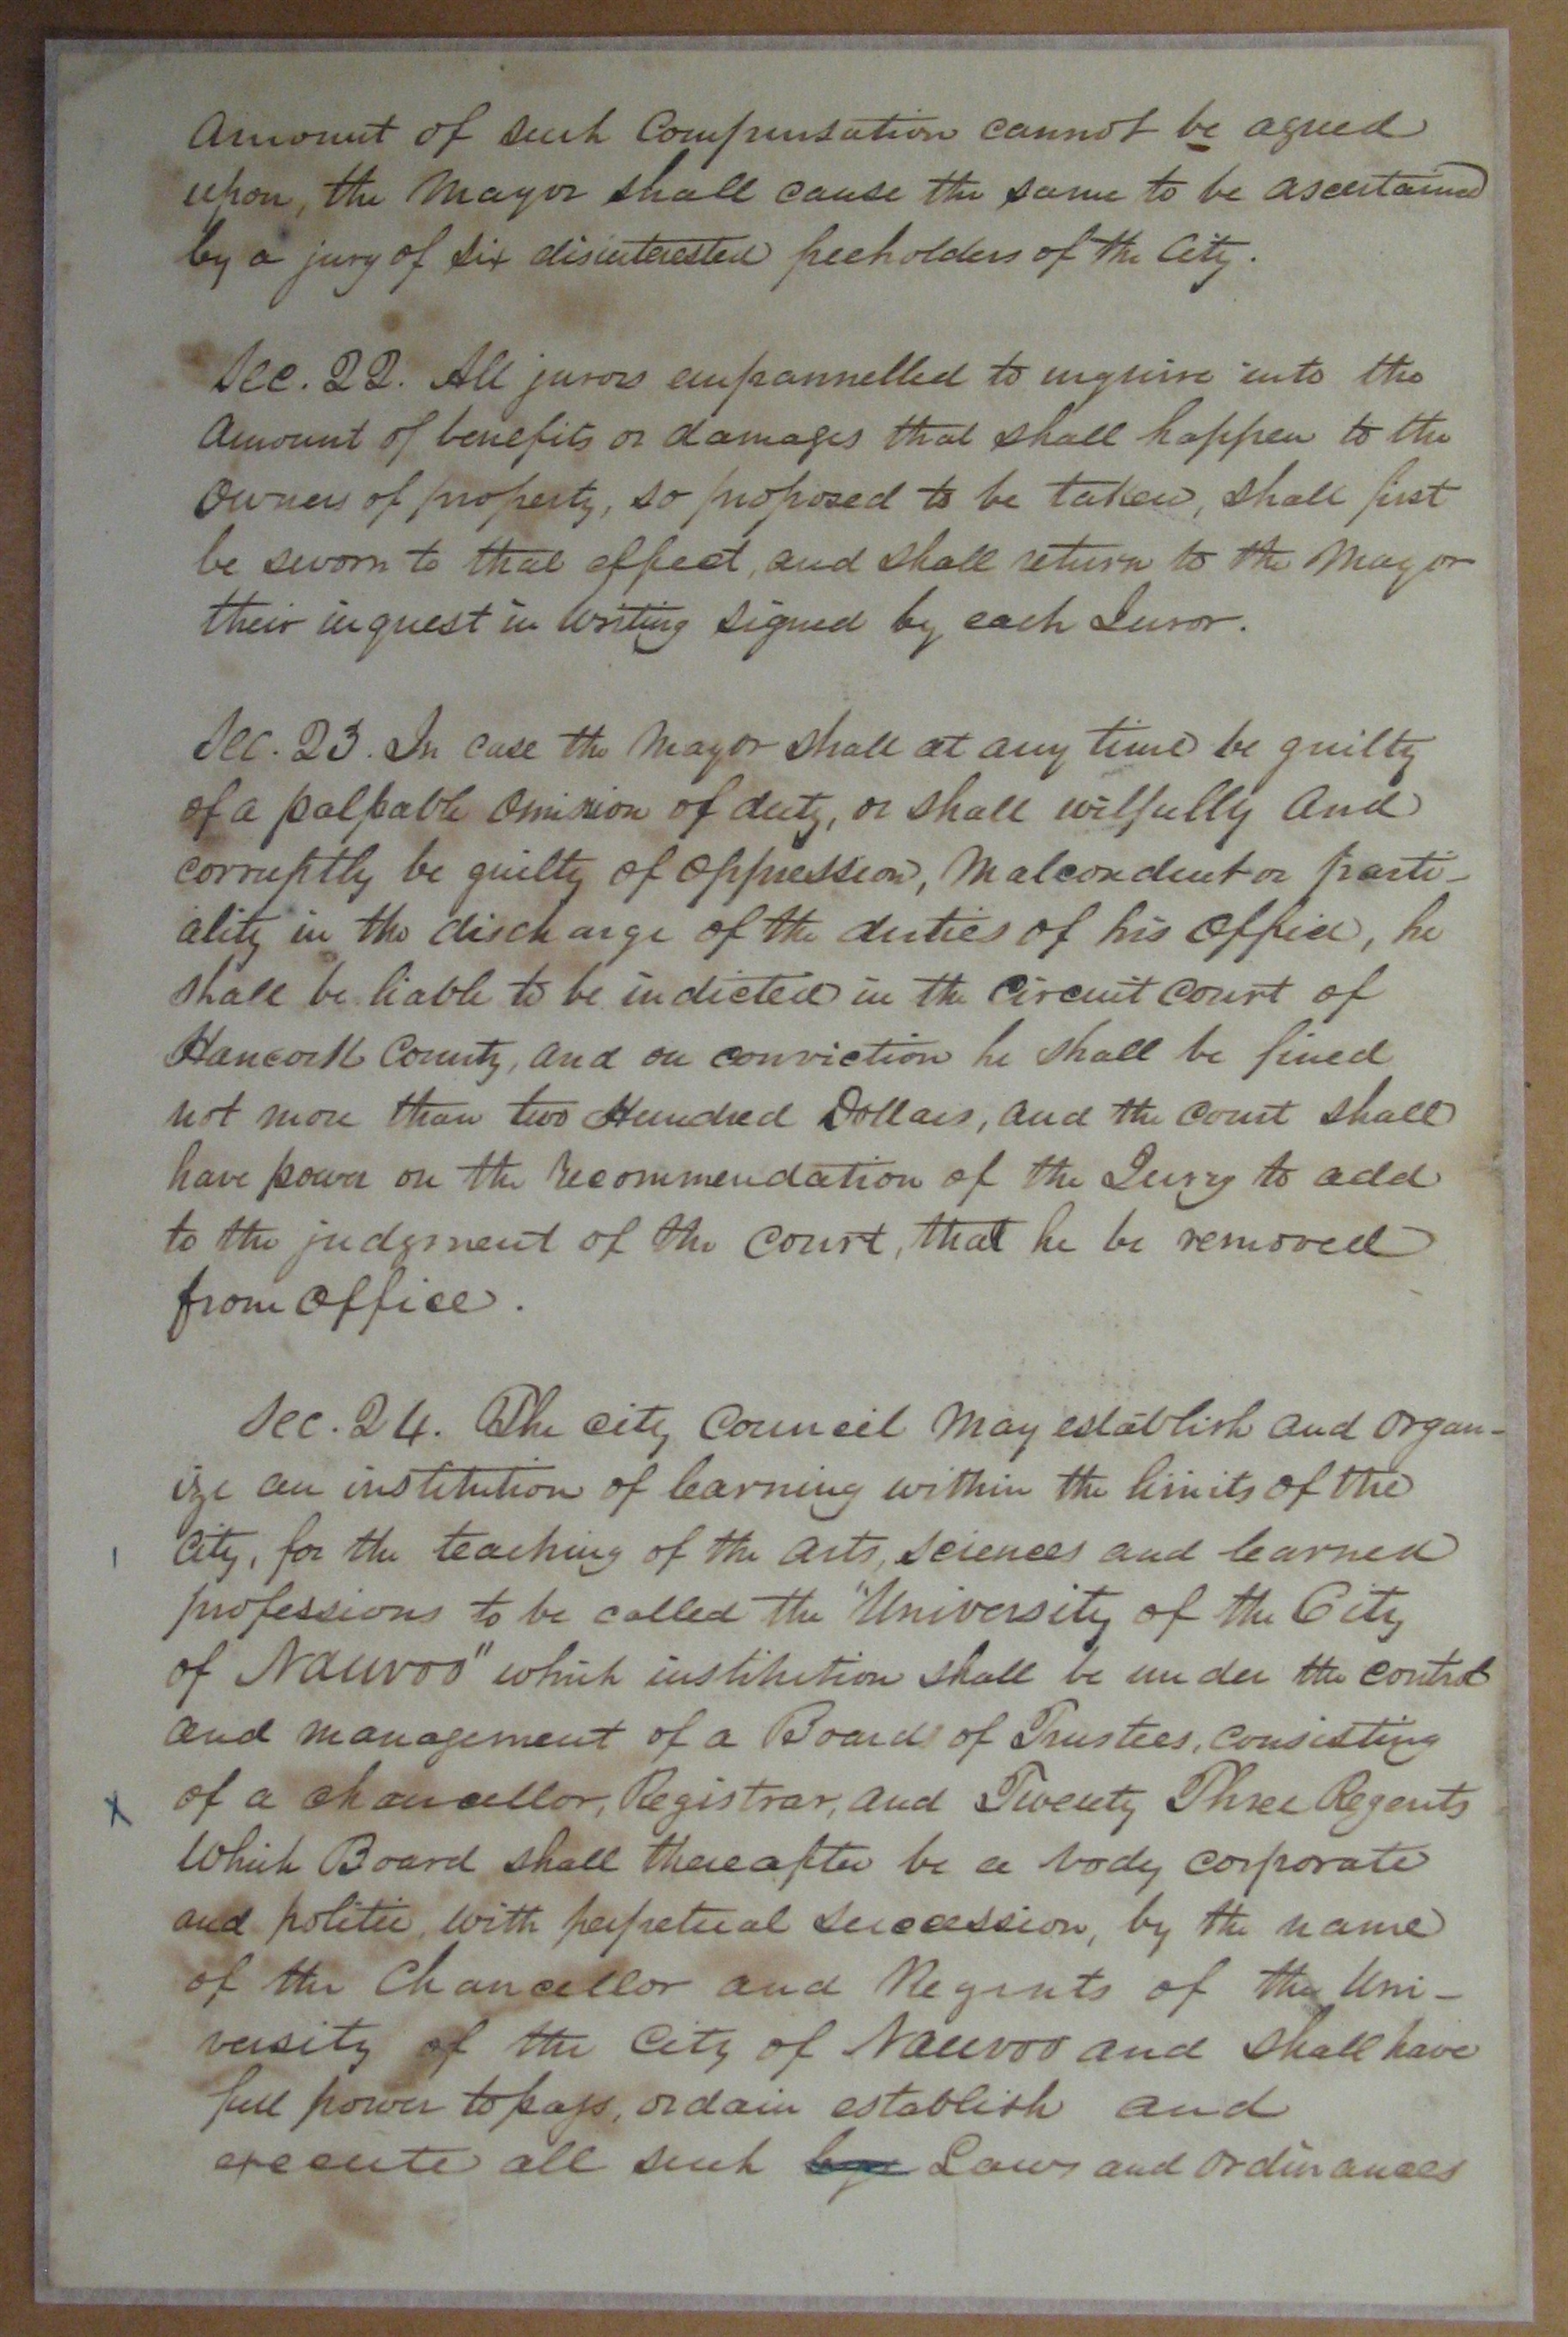 Amount of such Compensation cannot be agreed
upon, the Mayor shall cause the same to be ascertained
by a jury of six disinterested freeholders of the City.
Sec. 22. All jurors empannelled to inquire into the
Amount of benefits or damages that shall happen to the
Owners of property, so proposed to be taken, shall first
be sworn to that effect, and shall return to the Mayor
their inquest in Writing signed by each Juror.
Sec. 23. In case the Mayor shall at any time be guilty
of a palpable Omission of duty, or shall wilfully And
corruptly be guilty of Oppression, Malconduct or parti-
ality in the discharge of the duties of his Office, he
shall be liable to be indicted in the Circuit Court of
Hancock County, and on conviction he shall be fined
not more than two Hundred Dollars, and the Court shall
have power on the recommendation of the Jury to add
to the judgment of the Court, that he be removed
from Office.
Sec. 24. The City Council May establish and Organ-
ize an institution of learning within the limits of the
City, for the teaching of the Arts, sciences and learned
professions to be called the "University of the City
of Nauvoo" which institution shall be under the control
and management of a Board of Trustees, consisting
X of a Chancellor, Registrar, and Twenty Three Regents
Which Board shall thereafter be a body corporate
and politic, with perpetual succession, by the name
of the Chancellor and Regents of the Uni-
versity of the City of Nauvoo and shall have
full power to pass, ordain establish and
execute all such Laws and Ordinances